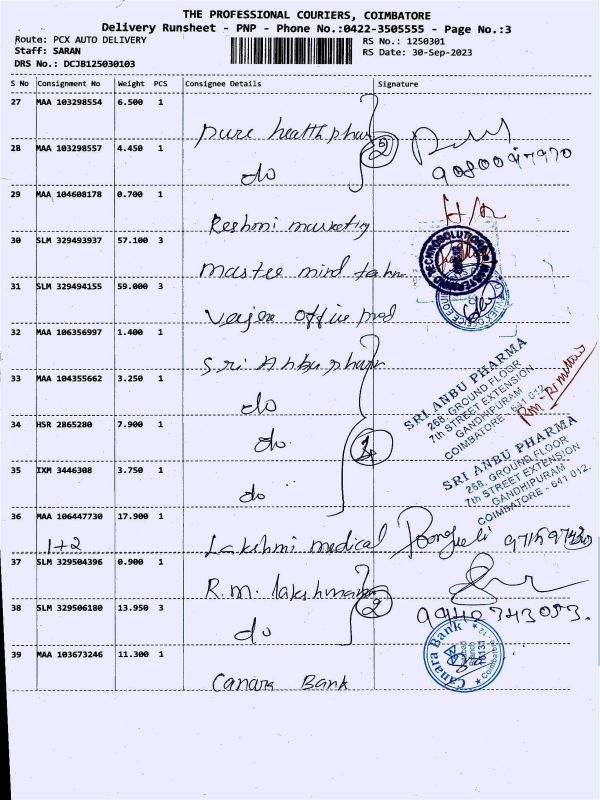 THE PROFESSIONAL COURIERS, COIMBATORE
Delivery Runsheet - PNP - Phone No.:0422-3505555 - Page No.:3
Route: PCX AUTO DELIVERY RS No.: 1250301
Staff: SARAN RS Date: 30-Sep-2023
DRS No.: DCJB125030103
S No Consignment No Weight PCS Consignee Details Signature
27 MAA 103298554 6.500 1
Pure health phar
28 MAA 103298557 4.450 1
do 2
9080047970
29 MAA 104608178 0.700 1
Reshmi marketing
30 SLM 329493937 57.100 3
master mind
31 SLM 329494155 59.000 3
office
32 MAA 106356997 1.400 1
Sri Anbu phar
33 MAA 104355662 3.250 1
do
SRI ANBU PHARMA
268, GROUND FLOOR
7th STREET EXTENSION
GANDHIPURAM
COIMBATORE - 641 012.
34 HSR 2865280 7.900 1
do
35 IXM 3446308 3.750 1
do
SRI ANBU PHARMA
268, GROUND FLOOR
7th STREET EXTENSION
GANDHIPURAM
COIMBATORE - 641 012.
36 MAA 106447730 17.900 1
1+2 Lakshmi medical
37 SLM 329504396 0.900 1
R.m. lakshmanan
38 SLM 329506180 13.950 3
do 2
Canara Bank
39 MAA 103673246 11.300 1
Canara Bank